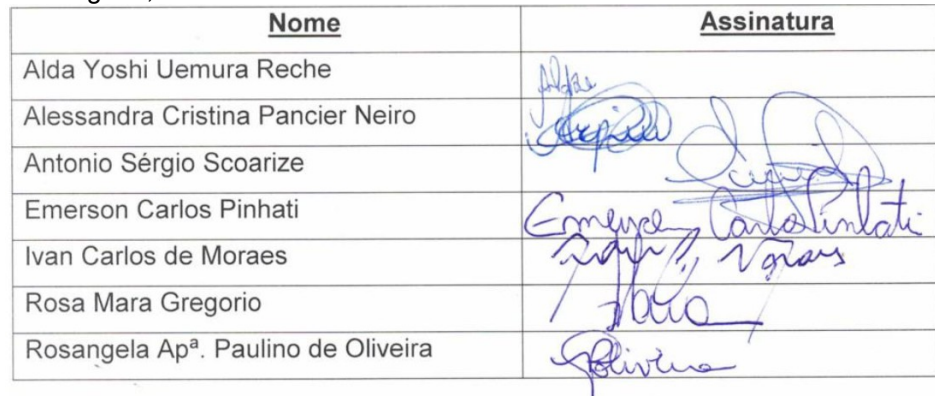 Nome Assinatura
Alda Yoshi Uemura Reche Alda
Alessandra Cristina Pancier Neiro
Antonio Sérgio Scoarize
Emerson Carlos Pinhati Emerson Carlos Pinhati
Ivan Carlos de Moraes Moraes
Rosa Mara Gregorio
Rosangela Apª. Paulino de Oliveira Oliveira